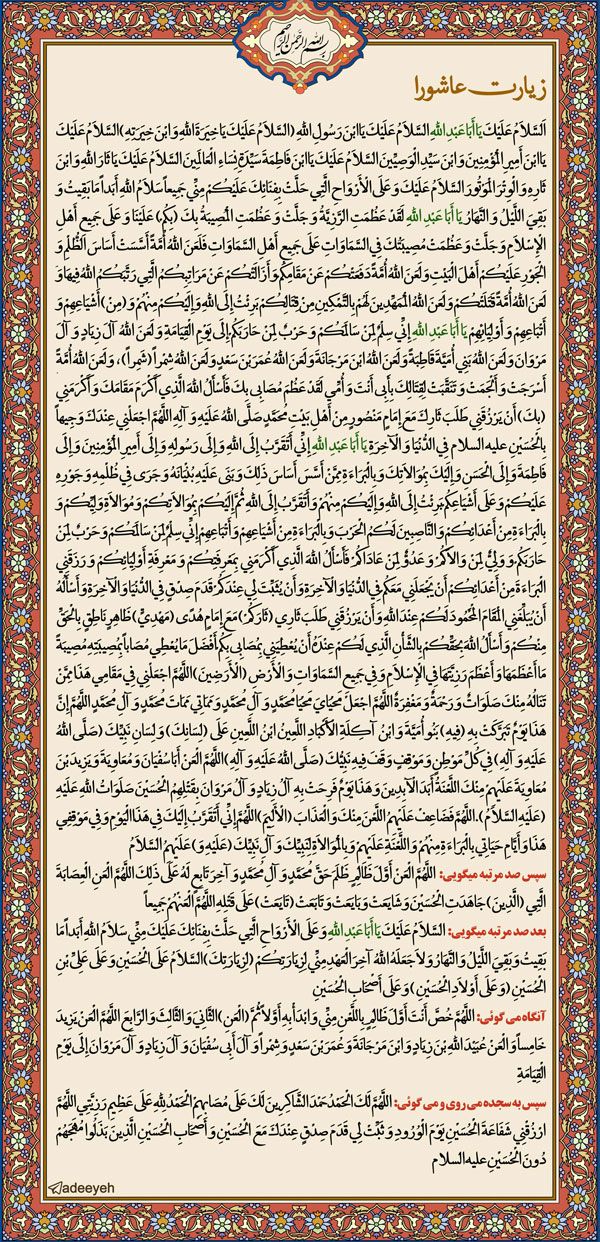 بسم الله الرحمن الرحیم
زیارت عاشورا
اَلسَّلاَمُ عَلَیْکَ یَا أَبَا عَبْدِ اللهِ السَّلاَمُ عَلَیْکَ یَا ابْنَ رَسُولِ اللهِ (السَّلاَمُ عَلَیْکَ یَا خِیَرَةَ اللهِ وَ ابْنَ خِیَرَتِهِ) السَّلاَمُ عَلَیْکَ
یَا ابْنَ أَمِیرِ الْمُؤْمِنِینَ وَ ابْنَ سَیِّدِ الْوَصِیِّینَ السَّلاَمُ عَلَیْکَ یَا ابْنَ فَاطِمَةَ سَیِّدَةِ نِسَاءِ الْعَالَمِینَ السَّلاَمُ عَلَیْکَ یَا ثَارَ اللهِ وَ ابْنَ
ثَارِهِ وَ الْوِتْرَ الْمَوْتُورَ السَّلاَمُ عَلَیْکَ وَ عَلَى الْأَرْوَاحِ الَّتِی حَلَّتْ بِفِنَائِکَ عَلَیْکُمْ مِنِّی جَمِیعاً سَلاَمُ اللهِ أَبَداً مَا بَقِیتُ وَ
بَقِیَ اللَّیْلُ وَ النَّهَارُ یَا أَبَا عَبْدِ اللهِ لَقَدْ عَظُمَتِ الرَّزِیَّةُ وَ جَلَّتْ وَ عَظُمَتِ الْمُصِیبَةُ بِکَ (بِکُمْ) عَلَیْنَا وَ عَلَى جَمِیعِ أَهْلِ
الْإِسْلاَمِ وَ جَلَّتْ وَ عَظُمَتْ مُصِیبَتُکَ فِی السَّمَاوَاتِ عَلَى جَمِیعِ أَهْلِ السَّمَاوَاتِ فَلَعَنَ اللهُ أُمَّةً أَسَّسَتْ أَسَاسَ الظُّلْمِ وَ
الْجَوْرِ عَلَیْکُمْ أَهْلَ الْبَیْتِ وَ لَعَنَ اللهُ أُمَّةً دَفَعَتْکُمْ عَنْ مَقَامِکُمْ وَ أَزَالَتْکُمْ عَنْ مَرَاتِبِکُمُ الَّتِی رَتَّبَکُمُ اللهُ فِیهَا وَ
لَعَنَ اللهُ أُمَّةً قَتَلَتْکُمْ وَ لَعَنَ اللهُ الْمُمَهِّدِینَ لَهُمْ بِالتَّمْکِینِ مِنْ قِتَالِکُمْ بَرِئْتُ إِلَى اللهِ وَ إِلَیْکُمْ مِنْهُمْ وَ (مِنْ) أَشْیَاعِهِمْ وَ
أَتْبَاعِهِمْ وَ أَوْلِیَائِهِمْ یَا أَبَا عَبْدِ اللهِ إِنِّی سِلْمٌ لِمَنْ سَالَمَکُمْ وَ حَرْبٌ لِمَنْ حَارَبَکُمْ إِلَى یَوْمِ الْقِیَامَةِ وَ لَعَنَ اللهُ آلَ زِیَادٍ وَ آلَ
مَرْوَانَ وَ لَعَنَ اللهُ بَنِی أُمَیَّةَ قَاطِبَةً وَ لَعَنَ اللهُ ابْنَ مَرْجَانَةَ وَ لَعَنَ اللهُ عُمَرَ بْنَ سَعْدٍ وَ لَعَنَ اللهُ شِمْراً (شَمِراً)، وَ لَعَنَ اللهُ أُمَّةً
أَسْرَجَتْ وَ أَلْجَمَتْ وَ تَنَقَّبَتْ لِقِتَالِکَ بِأَبِی أَنْتَ وَ أُمِّی لَقَدْ عَظُمَ مُصَابِی بِکَ فَأَسْأَلُ اللهَ الَّذِی أَکْرَمَ مَقَامَکَ وَ أَکْرَمَنِی
(بِکَ) أَنْ یَرْزُقَنِی طَلَبَ ثَارِکَ مَعَ إِمَامٍ مَنْصُورٍ مِنْ أَهْلِ بَیْتِ مُحَمَّدٍ صَلَّى اللهُ عَلَیْهِ وَ آلِهِ اللَّهُمَّ اجْعَلْنِی عِنْدَکَ وَجِیهاً
بِالْحُسَیْنِ علیه السلام فِی الدُّنْیَا وَ الْآخِرَةِ یَا أَبَا عَبْدِ اللهِ إِنِّی أَتَقَرَّبُ إِلَى اللهِ وَ إِلَى رَسُولِهِ وَ إِلَى أَمِیرِ الْمُؤْمِنِینَ وَ إِلَى
فَاطِمَةَ وَ إِلَى الْحَسَنِ وَ إِلَیْکَ بِمُوَالاَتِکَ وَ بِالْبَرَاءَةِ مِمَّنْ أَسَّسَ أَسَاسَ ذَلِکَ وَ بَنَى عَلَیْهِ بُنْیَانَهُ وَ جَرَى فِی ظُلْمِهِ وَ جَوْرِهِ
عَلَیْکُمْ وَ عَلَى أَشْیَاعِکُمْ بَرِئْتُ إِلَى اللهِ وَ إِلَیْکُمْ مِنْهُمْ وَ أَتَقَرَّبُ إِلَى اللهِ ثُمَّ إِلَیْکُمْ بِمُوَالاَتِکُمْ وَ مُوَالاَةِ وَلِیِّکُمْ وَ
بِالْبَرَاءَةِ مِنْ أَعْدَائِکُمْ وَ النَّاصِبِینَ لَکُمُ الْحَرْبَ وَ بِالْبَرَاءَةِ مِنْ أَشْیَاعِهِمْ وَ أَتْبَاعِهِمْ إِنِّی سِلْمٌ لِمَنْ سَالَمَکُمْ وَ حَرْبٌ لِمَنْ
حَارَبَکُمْ وَ وَلِیٌّ لِمَنْ وَالاَکُمْ وَ عَدُوٌّ لِمَنْ عَادَاکُمْ فَأَسْأَلُ اللهَ الَّذِی أَکْرَمَنِی بِمَعْرِفَتِکُمْ وَ مَعْرِفَةِ أَوْلِیَائِکُمْ وَ رَزَقَنِی
الْبَرَاءَةَ مِنْ أَعْدَائِکُمْ أَنْ یَجْعَلَنِی مَعَکُمْ فِی الدُّنْیَا وَ الْآخِرَةِ وَ أَنْ یُثَبِّتَ لِی عِنْدَکُمْ قَدَمَ صِدْقٍ فِی الدُّنْیَا وَ الْآخِرَةِ وَ أَسْأَلُهُ
أَنْ یُبَلِّغَنِی الْمَقَامَ الْمَحْمُودَ لَکُمْ عِنْدَ اللهِ وَ أَنْ یَرْزُقَنِی طَلَبَ ثَارِی (ثَارِکُمْ) مَعَ إِمَامٍ هُدًى (مَهْدِیٍّ) ظَاهِرٍ نَاطِقٍ بِالْحَقِّ
مِنْکُمْ وَ أَسْأَلُ اللهَ بِحَقِّکُمْ وَ بِالشَّأْنِ الَّذِی لَکُمْ عِنْدَهُ أَنْ یُعْطِیَنِی بِمُصَابِی بِکُمْ أَفْضَلَ مَا یُعْطِی مُصَاباً بِمُصِیبَتِهِ مُصِیبَةً
مَا أَعْظَمَهَا وَ أَعْظَمَ رَزِیَّتَهَا فِی الْإِسْلاَمِ وَ فِی جَمِیعِ السَّمَاوَاتِ وَ الْأَرْضِ (الْأَرَضِینَ) اللَّهُمَّ اجْعَلْنِی فِی مَقَامِی هَذَا مِمَّنْ
تَنَالُهُ مِنْکَ صَلَوَاتٌ وَ رَحْمَةٌ وَ مَغْفِرَةٌ اللَّهُمَّ اجْعَلْ مَحْیَایَ مَحْیَا مُحَمَّدٍ وَ آلِ مُحَمَّدٍ وَ مَمَاتِی مَمَاتَ مُحَمَّدٍ وَ آلِ مُحَمَّدٍ اللَّهُمَّ إِنَّ
هَذَا یَوْمٌ تَبَرَّکَتْ بِهِ (فِیهِ) بَنُو أُمَیَّةَ وَ ابْنُ آکِلَةِ الْأَکْبَادِ اللَّعِینُ ابْنُ اللَّعِینِ عَلَى (لِسَانِکَ) وَ لِسَانِ نَبِیِّکَ (صَلَّى اللهُ
عَلَیْهِ وَ آلِهِ) فِی کُلِّ مَوْطِنٍ وَ مَوْقِفٍ وَقَفَ فِیهِ نَبِیُّکَ (صَلَّى اللهُ عَلَیْهِ وَ آلِهِ) اللَّهُمَّ الْعَنْ أَبَا سُفْیَانَ وَ مُعَاوِیَةَ وَ یَزِیدَ بْنَ
مُعَاوِیَةَ عَلَیْهِمْ مِنْکَ اللَّعْنَةُ أَبَدَ الْآبِدِینَ وَ هَذَا یَوْمٌ فَرِحَتْ بِهِ آلُ زِیَادٍ وَ آلُ مَرْوَانَ بِقَتْلِهِمُ الْحُسَیْنَ صَلَوَاتُ اللهِ عَلَیْهِ
(عَلَیْهِ السَّلاَمُ) .اللَّهُمَّ فَضَاعِفْ عَلَیْهِمُ اللَّعْنَ مِنْکَ وَ الْعَذَابَ (الْأَلِیمَ) اللَّهُمَّ إِنِّی أَتَقَرَّبُ إِلَیْکَ فِی هَذَا الْیَوْمِ وَ فِی مَوْقِفِی
هَذَا وَ أَیَّامِ حَیَاتِی بِالْبَرَاءَةِ مِنْهُمْ وَ اللَّعْنَةِ عَلَیْهِمْ وَ بِالْمُوَالاَةِ لِنَبِیِّکَ وَ آلِ نَبِیِّکَ (عَلَیْهِ وَ) عَلَیْهِمُ السَّلاَمُ
سپس صد مرتبه میگویی: اللَّهُمَّ الْعَنْ أَوَّلَ ظَالِمٍ ظَلَمَ حَقَّ مُحَمَّدٍ وَ آلِ مُحَمَّدٍ وَ آخِرَ تَابِعٍ لَهُ عَلَى ذَلِکَ اللَّهُمَّ الْعَنِ الْعِصَابَةَ
الَّتِی (الَّذِینَ) جَاهَدَتِ الْحُسَیْنَ وَ شَایَعَتْ وَ بَایَعَتْ وَ تَابَعَتْ (تَایَعَتْ) عَلَى قَتْلِهِ اللَّهُمَّ الْعَنْهُمْ جَمِیعاً
بعد صد مرتبه میگویی: السَّلاَمُ عَلَیْکَ یَا أَبَا عَبْدِ اللهِ وَ عَلَى الْأَرْوَاحِ الَّتِی حَلَّتْ بِفِنَائِکَ عَلَیْکَ مِنِّی سَلاَمُ اللهِ أَبَداً مَا
بَقِیتُ وَ بَقِیَ اللَّیْلُ وَ النَّهَارُ وَ لاَ جَعَلَهُ اللهُ آخِرَ الْعَهْدِ مِنِّی لِزِیَارَتِکُمْ (لِزِیَارَتِکَ) السَّلاَمُ عَلَى الْحُسَیْنِ وَ عَلَى عَلِیِّ بْنِ
الْحُسَیْنِ (وَ عَلَى أَوْلاَدِ الْحُسَیْنِ) وَ عَلَى أَصْحَابِ الْحُسَیْنِ
آنگاه می گوئی: اللَّهُمَّ خُصَّ أَنْتَ أَوَّلَ ظَالِمٍ بِاللَّعْنِ مِنِّی وَ ابْدَأْ بِهِ أَوَّلاً ثُمَّ (الْعَنِ) الثَّانِیَ وَ الثَّالِثَ وَ الرَّابِعَ اللَّهُمَّ الْعَنْ یَزِیدَ
خَامِساً وَ الْعَنْ عُبَیْدَ اللهِ بْنَ زِیَادٍ وَ ابْنَ مَرْجَانَةَ وَ عُمَرَ بْنَ سَعْدٍ وَ شِمْراً وَ آلَ أَبِی سُفْیَانَ وَ آلَ زِیَادٍ وَ آلَ مَرْوَانَ إِلَى یَوْمِ
الْقِیَامَةِ
سپس به سجده می روی و می گوئی: اللَّهُمَّ لَکَ الْحَمْدُ حَمْدَ الشَّاکِرِینَ لَکَ عَلَى مُصَابِهِمْ الْحَمْدُ لِلّهِ عَلَى عَظِیمِ رَزِیَّتِی اللَّهُمَّ
ارْزُقْنِی شَفَاعَةَ الْحُسَیْنِ یَوْمَ الْوُرُودِ وَ ثَبِّتْ لِی قَدَمَ صِدْقٍ عِنْدَکَ مَعَ الْحُسَیْنِ وَ أَصْحَابِ الْحُسَیْنِ الَّذِینَ بَذَلُوا مُهَجَهُمْ
دُونَ الْحُسَیْنِ علیه السلام
adeeyeh